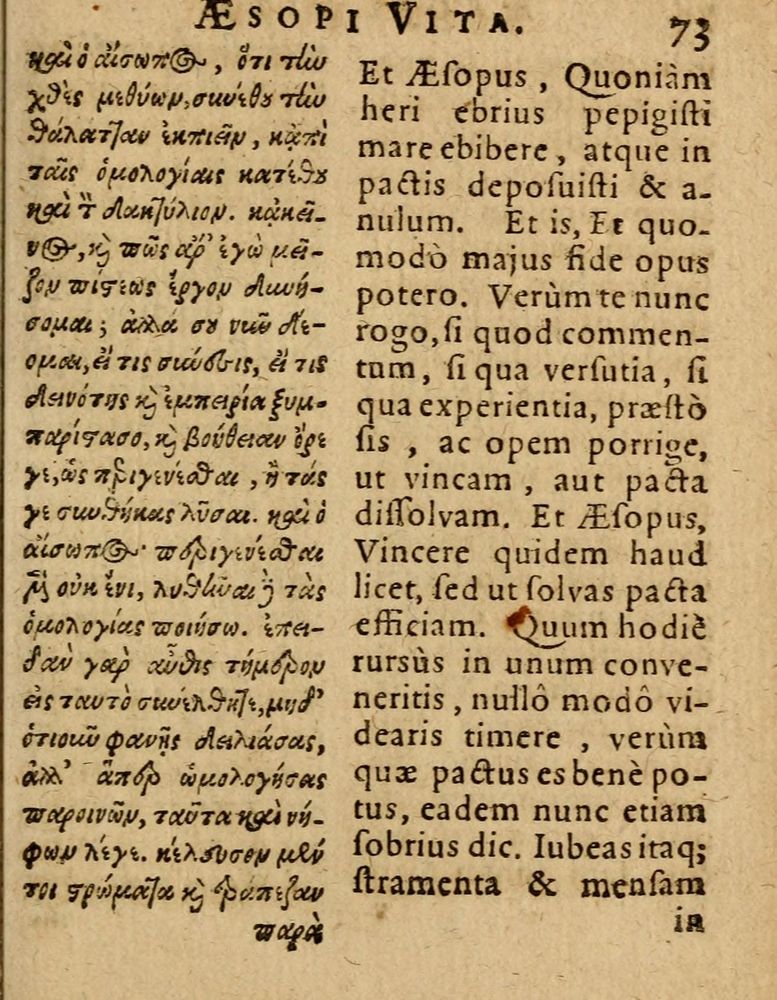 ÆSOPI VITA. 73
καὶ ὁ αἴσωπος, ὅτι τῇ
χθὲς μεθύων, συνέθου τὴν
θάλατταν ἐκπιεῖν, κἀπὶ
ταῖς ὁμολογίαις κατέθου
καὶ τ̀ δακτύλιον. κἀκεῖ-
νος, κὶ πῶς ἂρ' ἐγὼ μεῖ-
ζον πίστεως ἔργον δυνή-
σομαι; ἀλλά σου νῦν δέ-
ομαι, εἴ τις σύνεσις, εἴ τις
δεινότης κὶ ἐμπειρία ξυμ-
παρίστασο, κὶ βοήθειαν ὄρε
γε, ὡς περιγενέσθαι, ἢ τάς
γε συνθήκας λῦσαι. καὶ ὁ
αἴσωπος· περιγενέσθαι
μὲν οὐκ ἔνι, λυθῆναι δὲ τὰς
ὁμολογίας ποιήσω. ἐπει-
δὰν γὰρ αὖθις τήμερον
εἰς ταυτὸ συνέλθητε, μηδ'
ὁτιοῦν φανῇς δειλιάσας,
ἀλλ' ἅπερ ὡμολόγησας
παροινῶν, ταῦτα καὶ νή-
φων λέγε. κέλευσον μέν
τοι στρώματα κὶ τράπεζαν
παρὰ
Et Æſopus, Quoniàm
heri ebrius pepigiſti
mare ebibere, atque in
pactis depoſuiſti & a-
nulum. Et is, Et quo-
modò majus fide opus
potero. Verùm te nunc
rogo, ſi quod commen-
tum, ſi qua verſutia, ſi
qua experientia, præſtò
ſis, ac opem porrige,
ut vincam, aut pacta
diſſolvam. Et Æſopus,
Vincere quidem haud
licet, ſed ut ſolvas pacta
efficiam. Quum hodiè
rursùs in unum conve-
neritis, nullô modô vi-
dearis timere, verùm
quæ pactus es benè po-
tus, eadem nunc etiam
ſobrius dic. Iubeas itaq;
ſtramenta & menſam
in